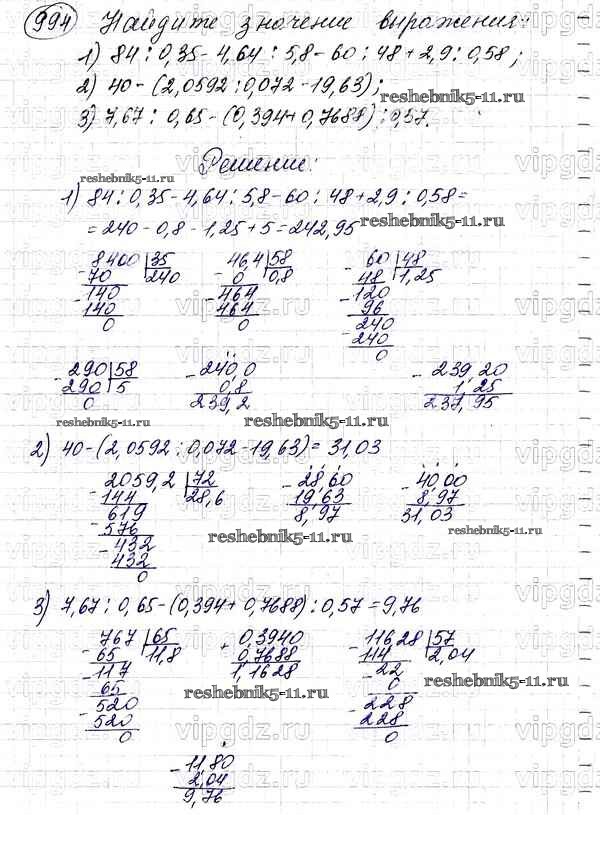 994 Найдите значение выражения:
1) 84 : 0,35 - 4,64 : 5,8 - 60 : 48 + 2,9 : 0,58;
2) 40 - (2,0592 : 0,072 - 19,63);
3) 7,67 : 0,65 - (0,394 + 0,7688) : 0,57.
reshebnik5-11.ru
Решение:
reshebnik5-11.ru
1) 84 : 0,35 - 4,64 : 5,8 - 60 : 48 + 2,9 : 0,58 =
= 240 - 0,8 - 1,25 + 5 = 242,95
8400 | 35 46,4 | 58 60 | 48
- 70 240 - 0 0,8 - 48 1,25
- 140 - 464 - 120
140 464 96
0 0 - 240
240
0
- 290 | 58 - 240,0 - 239,20
290 5 0,8 1,25
0 239,2 237,95
reshebnik5-11.ru
reshebnik5-11.ru
2) 40 - (2,0592 : 0,072 - 19,63) = 31,03
- 2059,2 | 72 - 28,60 - 40,00
144 28,6 19,63 8,97
- 619 8,97 31,03
576
- 432
432
0
reshebnik5-11.ru
reshebnik5-11.ru
3) 7,67 : 0,65 - (0,394 + 0,7688) : 0,57 = 9,76
- 767 | 65 + 0,3940 - 116,28 | 57
65 11,8 0,7688 114 2,04
- 117 1,1628 - 22
65 0
- 520 - 228
520 228
0 0
reshebnik5-11.ru
reshebnik5-11.ru
- 11,80
2,04
9,76
vipgdz.ru